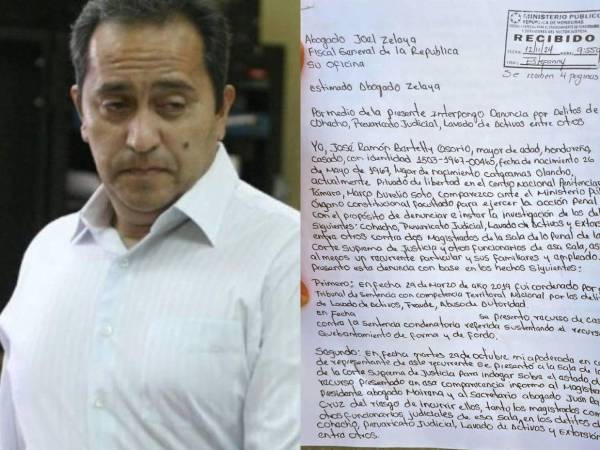 MINISTERIO PÚBLICO
REPÚBLICA DE HONDURAS
RECIBIDO
12/11/24
Se reciben 4 paginas
Abogado Joel Zelaya
Fiscal General de la Republica
Su Oficina
Estimado Abogado Zelaya
Por medio de la presente Interpongo Denuncia por Delitos de
Cohecho, Prevaricato Judicial, Lavado de Activos entre otros
Yo, José Ramón Bertetty Osorio, mayor de edad, hondureño
casado, con identidad 1503-1967-00465, fecha de nacimiento 26
de Mayo de 1967, lugar de nacimiento Catacamas Olancho,
actualmente Privado de libertad en el Centro Nacional Penitenciar
Támara, Marco Aurelio Soto, Comparezco ante el Ministerio Púb
Órgano constitucional facultado para ejercer la acción penal
con el propósito de denunciar e instar la investigación de los de
Siguientes: Cohecho, Prevaricato Judicial, Lavado de Activos y Extors
entre otros contra dos Magistrados de la Sala de lo Penal de la
Corte Suprema de Justicia y otros funcionarios de esa Sala, as
al menos un recurrente particular y sus familiares y empleado.
Presento esta denuncia con base en los hechos Siguientes:
Primero: En fecha 29 de Marzo de año 2019 fui condenado por
Tribunal de Sentencia con competencia Territorial Nacional por los deli
de Lavado de Activos, Fraude, Abuso de Autoridad.
en Fecha se presento recurso de cas
contra la Sentencia condenatoria referida sustentando el recur
Quebrantamiento de forma y de fondo.
Segundo: En fecha martes 29 de Octubre mi apoderada en c
de representante de este recurrente se presento a la Sala de l
de la Corte Suprema de Justicia para indagar sobre el estado d
recurso presentado en esa comparecencia informo al Magistr
Presidente abogado Mairena y al Secretario abogado Juan
Cruz del riesgo de incurrir ellos, tanto los magistrados com
otros funcionarios judiciales de esa Sala, en los delitos d
cohecho, Prevaricato Judicial, Lavado de Activos y Extorsión
entre otros.